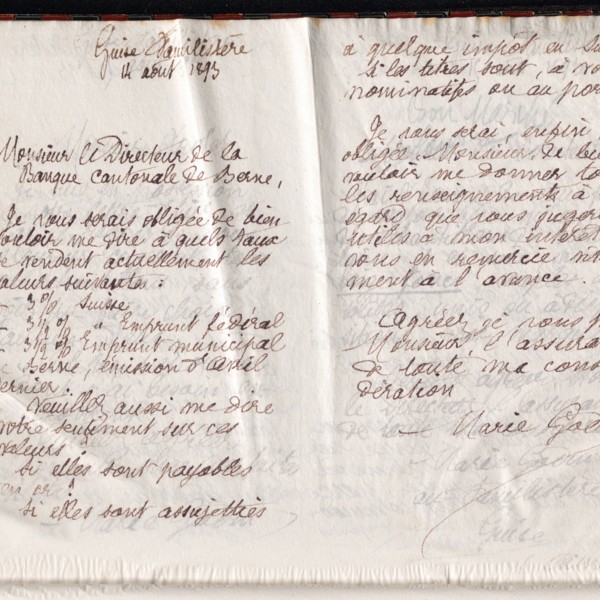 Guise Familistère
14 août 1893
Monsieur le Directeur de la
Banque cantonale de Berne,
Je vous serais obligée de bien
vouloir me dire à quels taux
se vendent actuellement les
valeurs suivantes :
3 % Suisse
3 ½ % " Emprunt fédéral
3 ½ % Emprunt municipal
Berne, émission d'avril
dernier.
Veuillez aussi me dire
votre sentiment sur ces
valeurs
si elles sont payables
en or ?
si elles sont assujetties
à quelque impôt en Su
si les titres sont, à vo
nominatifs ou au por
Je vous serai, enfin
obligée, Monsieur, de bie
vouloir me donner to
les renseignements à
égard que vous jugere
utiles à mon intérêt
vous en remercie
ment à l'avance.
Agréez, je vous
Monsieur, l'assura
de toute ma cons
dération
Marie God